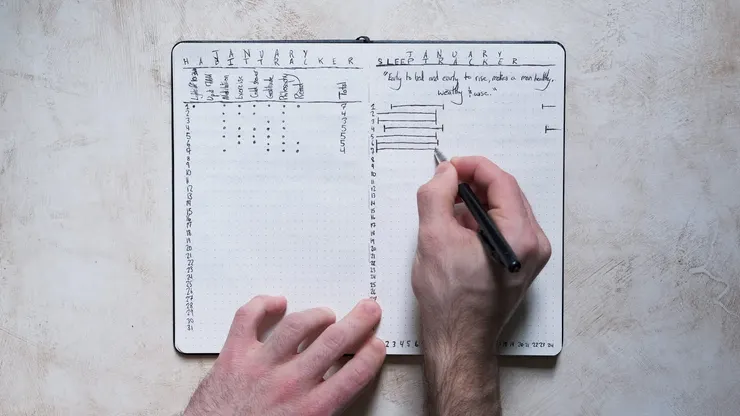 JANUARY
HABIT TRACKER
Meditation
Exercise
Cold shower
Gratitude
Philosophy
Read
Total
1 7
2 4
3 3
4 5
5 5
6 5
7 4
8
9
10
11
12
13
14
15
16
17
18
19
20
21
22
23
24
25
26
27
28
29
30
31
JANUARY
SLEEP TRACKER
"Early to bed and early to rise, makes a man healthy,
wealthy & wise."
1
2
3
4
5
6
7
8
9
10
11
12
13
14
15
16
17
18
19
20
21
22
23
24
25
26
2 3 4 5 6 19 20 21 22 23 24